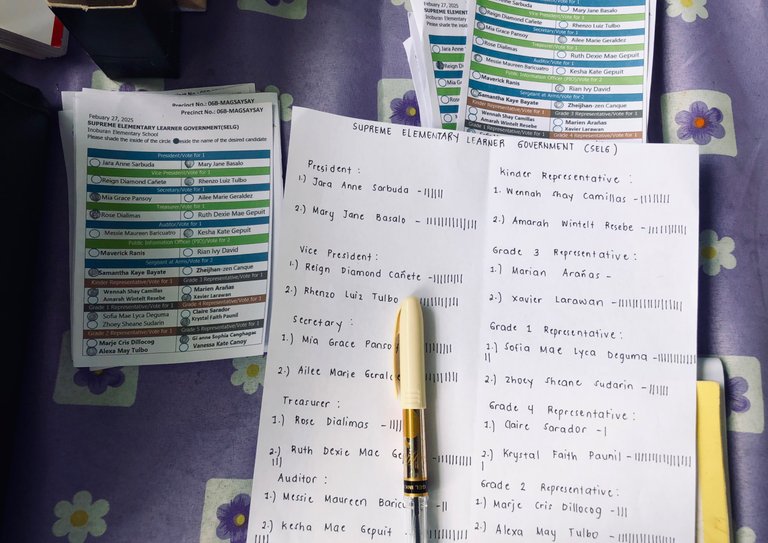 Precinct No.: 06B-MAGSAYSAY
Precinct No.: 06B-MAGSAYSAY
Febuary 27, 2025
SUPREME ELEMENTARY LEARNER GOVERNMENT(SELG)
Inoburan Elementary School
Please shade the inside of the circle beside the name of the desired candidate
President/Vote for 1
Jara Anne Sarbuda Mary Jane Basalo
Vice President/Vote for 1
Reign Diamond Cañete Rhenzo Luiz Tulbo
Secretary/Vote for 1
Mia Grace Pansoy Ailee Marie Geraldez
Treasurer/Vote for 1
Rose Dialimas Ruth Dexie Mae Gepuit
Auditor/Vote for 1
Messie Maureen Baricuatro Kesha Kate Gepuit
Public Information Officer (PIO)/Vote for 2
Maverick Ranis Rian Ivy David
Sergeant at Arms/Vote for 2
Samantha Kaye Bayate Zheijhan-zen Canque
Kinder Representative/Vote for 1 Grade 3 Representative/Vote for 1
Wennah Shay Camillas Marien Arañas
Amarah Wintelt Resebe Xavier Larawan
Grade 1 Representative/Vote for 1 Grade 4 Representative/Vote for 1
Sofia Mae Lyca Deguma Claire Sarador
Zhoey Sheane Sudarin Krystal Faith Paunil
Grade 2 Representative/Vote for 1 Grade 5 Representative/Vote for 1
Marje Cris Dillocog Gi anne Sophia Canghagas
Alexa May Tulbo Vanessa Kate Canoy
February 27, 2025
SUPREME ELEMENT
Inoburan Elementary
Please shade the inside
Jara Anne
Reign D
Mia Gra
Rose
Anne Sarbuda Mary Jane Basalo
Vice President/Vote for 1
Reign Diamond Cañete Rhenzo Luiz Tulbo
Secretary/Vote for 1
Mia Grace Pansoy Ailee Marie Geraldez
Treasurer/Vote for 1
Rose Dialimas Ruth Dexie Mae Gepuit
Auditor/Vote for 1
Messie Maureen Baricuatro Kesha Kate Gepuit
Public Information Officer (PIO)/Vote for 2
Maverick Ranis Rian Ivy David
Sergeant at Arms/Vote for 2
Samantha Kaye Bayate Zheijhan-zen Canque
Kinder Representative/Vote for 1 Grade 3 Representative/Vote for 1
Wennah Shay Camillas Marien Arañas
Amarah Wintelt Resebe Xavier Larawan
SUPREME ELEMENTARY LEARNER GOVERNMENT (SELG)
President :
1.) Jara Anne Sarbuda -
2.) Mary Jane Basalo -
Vice President :
1.) Reign Diamond Cañete -
2.) Rhenzo Luiz Tulbo
Secretary :
1.) Mia Grace Panso
2.) Ailee Marie Geralde
Treasurer :
1.) Rose Dialimas -
2.) Ruth Dexie Mae Ge
Auditor :
1.) Messie Maureen Baricu
2.) Kesha Mae Gepuit
Kinder Representative :
1. Wennah Shay Camillas -
2.) Amarah Wintelt Resebe -
Grade 3 Representative :
1.) Marian Arañas -
2.) Xavier Larawan -
Grade 1 Representative :
1.) Sofia Mae Lyca Deguma -
2.) Zhoey Sheane Sudarin -
Grade 4 Representative :
1.) Claire Sarador -
2.) Krystal Faith Paunil -
Grade 2 Representative :
1.) Marje Cris Dillocog -
2.) Alexa May Tulbo -